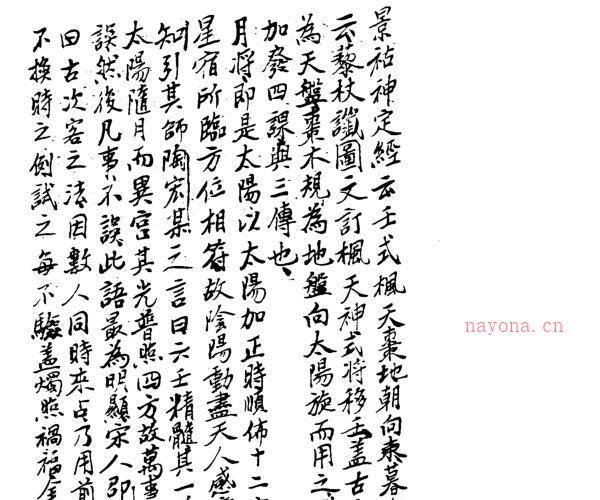 景祐神定經云壬式楓天棗地朝向東暮
云藜杖讖圖文訂楓天神式將移壬盖古
為天盤棗木規為地盤向太陽旋而用之
加發四課與三傳也
月將即是太陽以太陽加正時順佈十二
星宿所臨方位相符故陰陽動盡天人感
知引其師陶宏某之言曰六壬精髓其一
太陽隨月而異宮其光普照四方故萬事
誤然後凡事不誤此語最為明顯宋人邵
曰古次客之法因數人同時來占乃用前
不換時之例試之每不驗盖燭照禍福全
nayona.cn